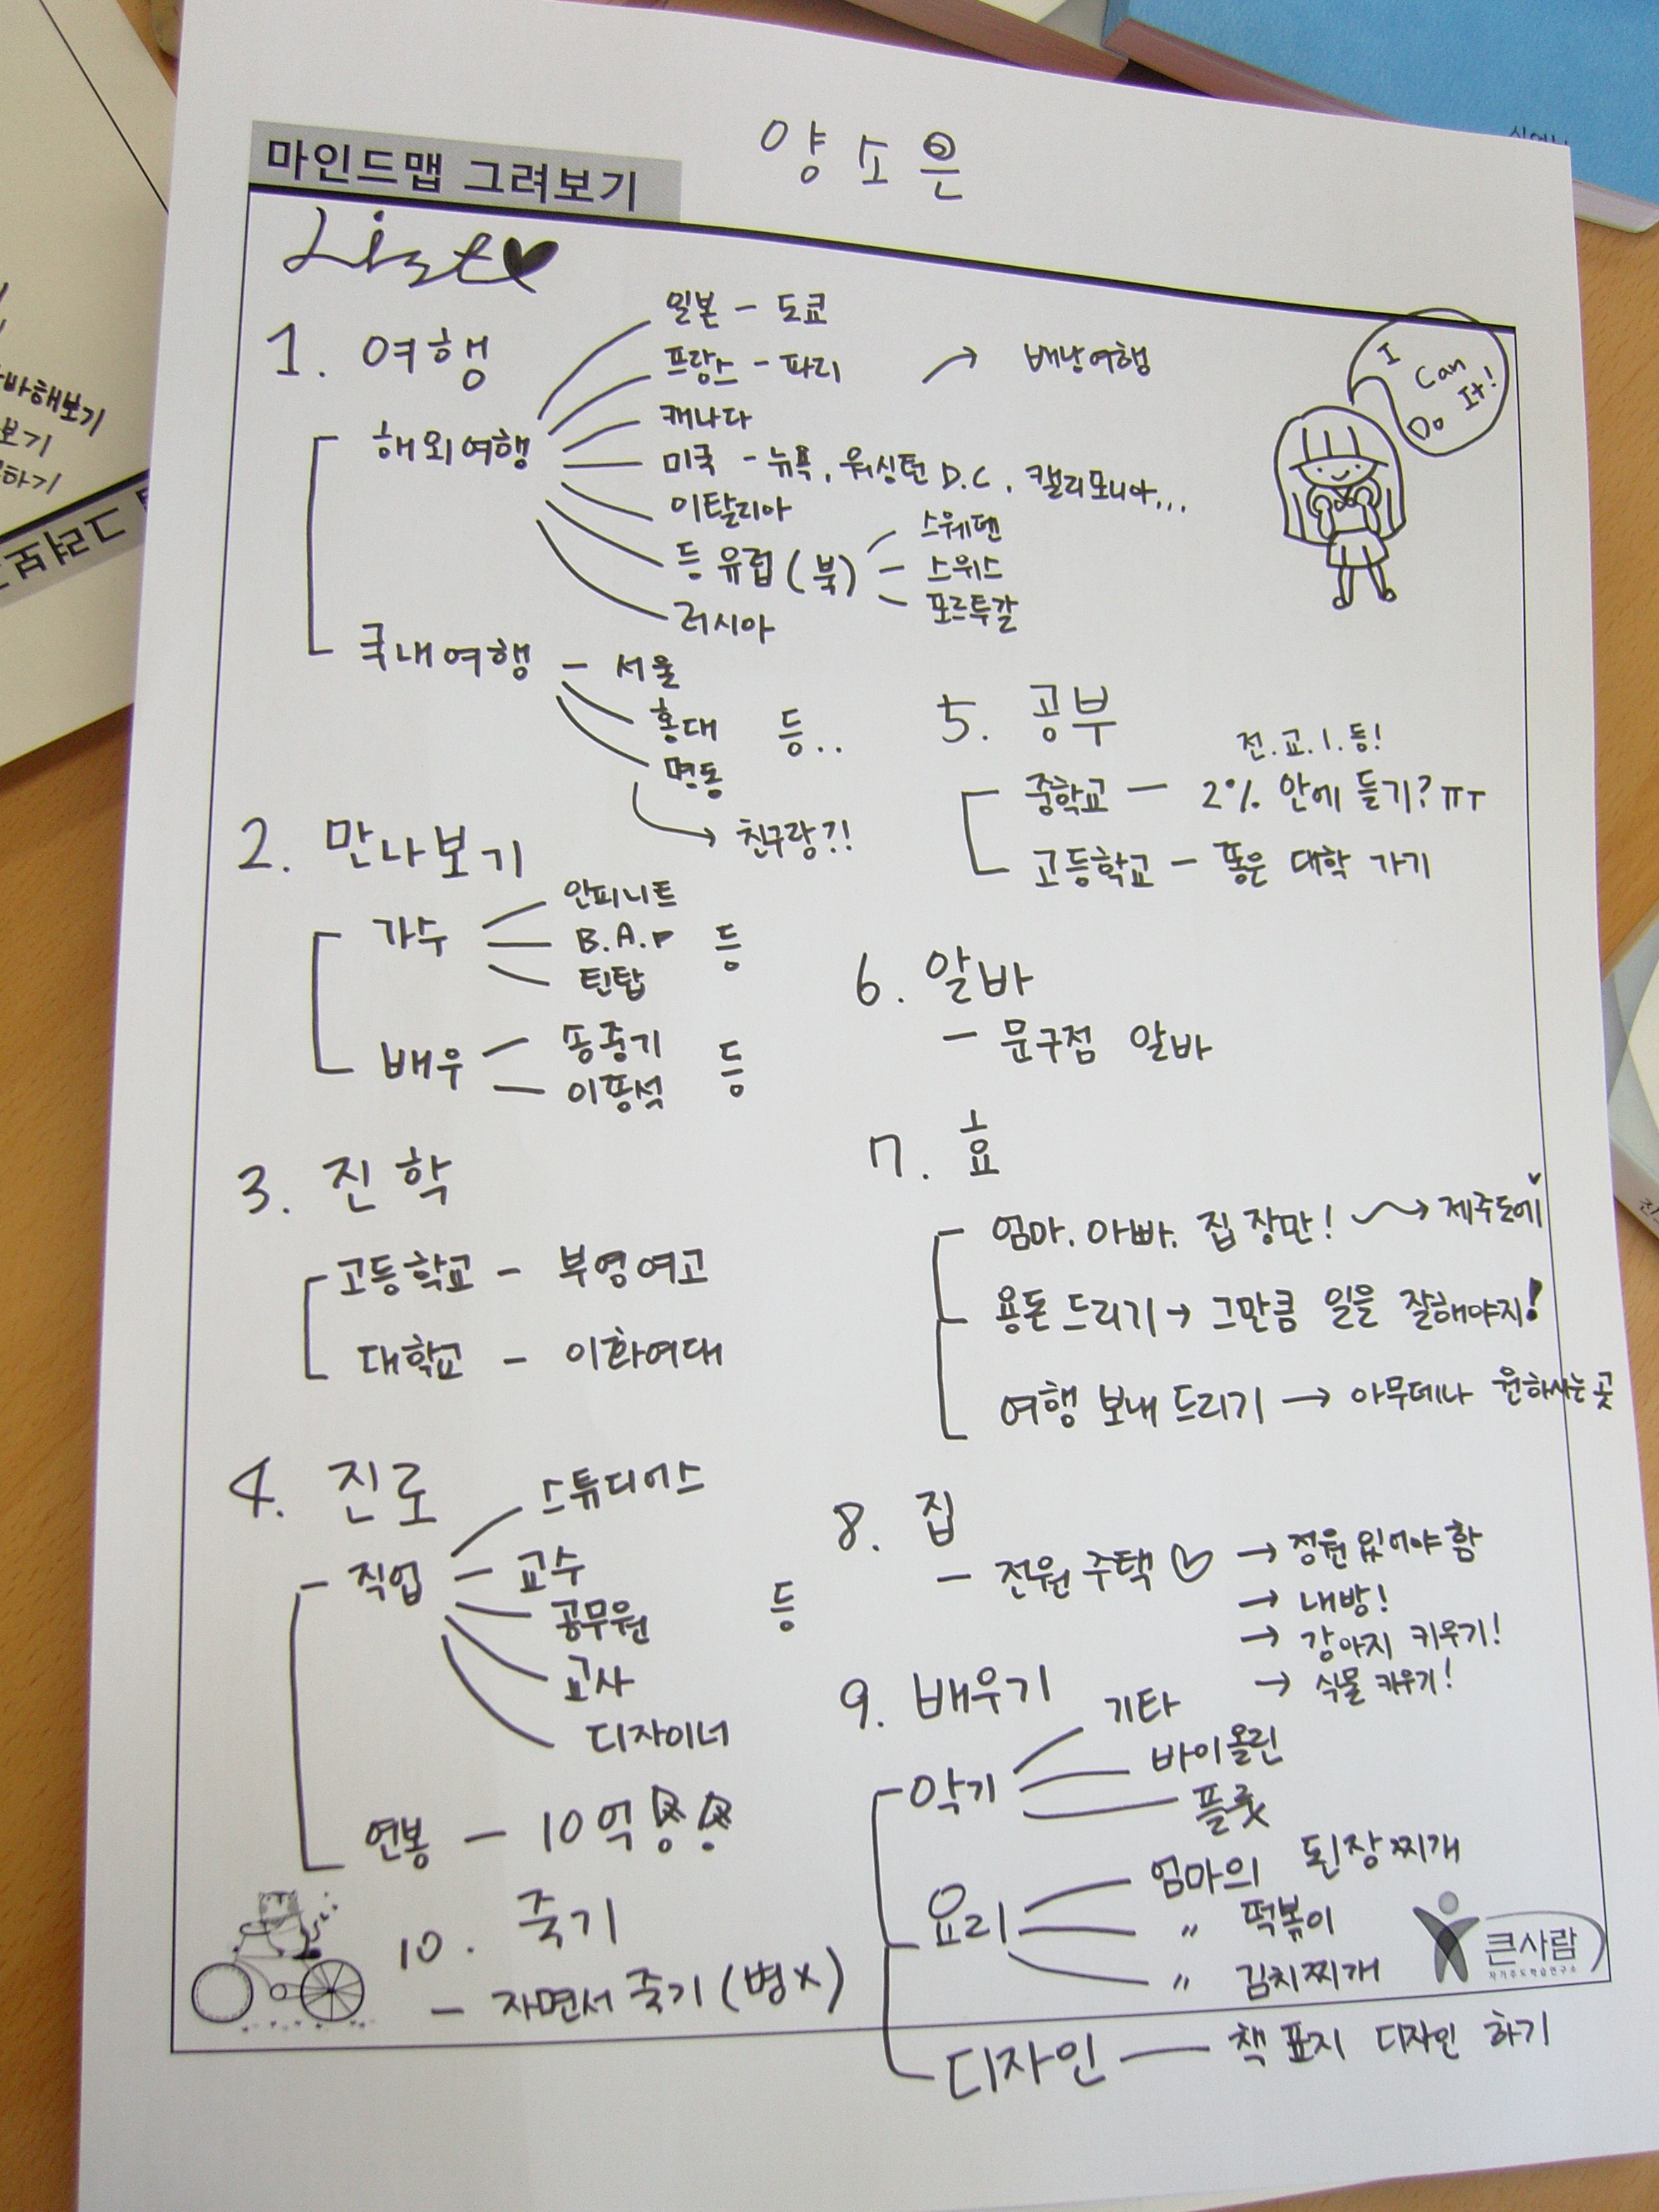 양소은
마인드맵 그려보기
List
1. 여행
해외여행
일본 - 도쿄
프랑스 - 파리 → 배낭여행
캐나다
미국 - 뉴욕, 워싱턴 D.C, 캘리포니아...
이탈리아
등 유럽(북)
스웨덴
스위스
포르투갈
러시아
국내여행 - 서울
홍대 등..
명동
→ 친구랑?!
I Can Do It!
2. 만나보기
가수
인피니트
B.A.P 등
틴탑
배우
송중기 등
이종석
3. 진학
고등학교 - 부영여고
대학교 - 이화여대
4. 진로
직업
스튜디어스
교수
공무원 등
교사
디자이너
연봉 - 10억
5. 공부
전.교.1.등!
중학교 - 2% 안에 들기? ㅠㅜ
고등학교 - 좋은 대학 가기
6. 알바
- 문구점 알바
7. 효
엄마. 아빠. 집 장만! → 제주도에
용돈 드리기 → 그만큼 일을 잘해야지!
여행 보내 드리기 → 아무데나 원하시는 곳
8. 집
- 전원 주택♡ → 정원 있어야 함
→ 내방!
→ 강아지 키우기!
→ 식물 키우기!
9. 배우기
악기
기타
바이올린
플룻
요리
엄마의 된장찌개
〃 떡볶이
〃 김치찌개
디자인 — 책 표지 디자인 하기
10. 죽기
- 자면서 죽기 (병X)
큰사람
자기주도학습연구소
바해보기
보기
하기
그려보